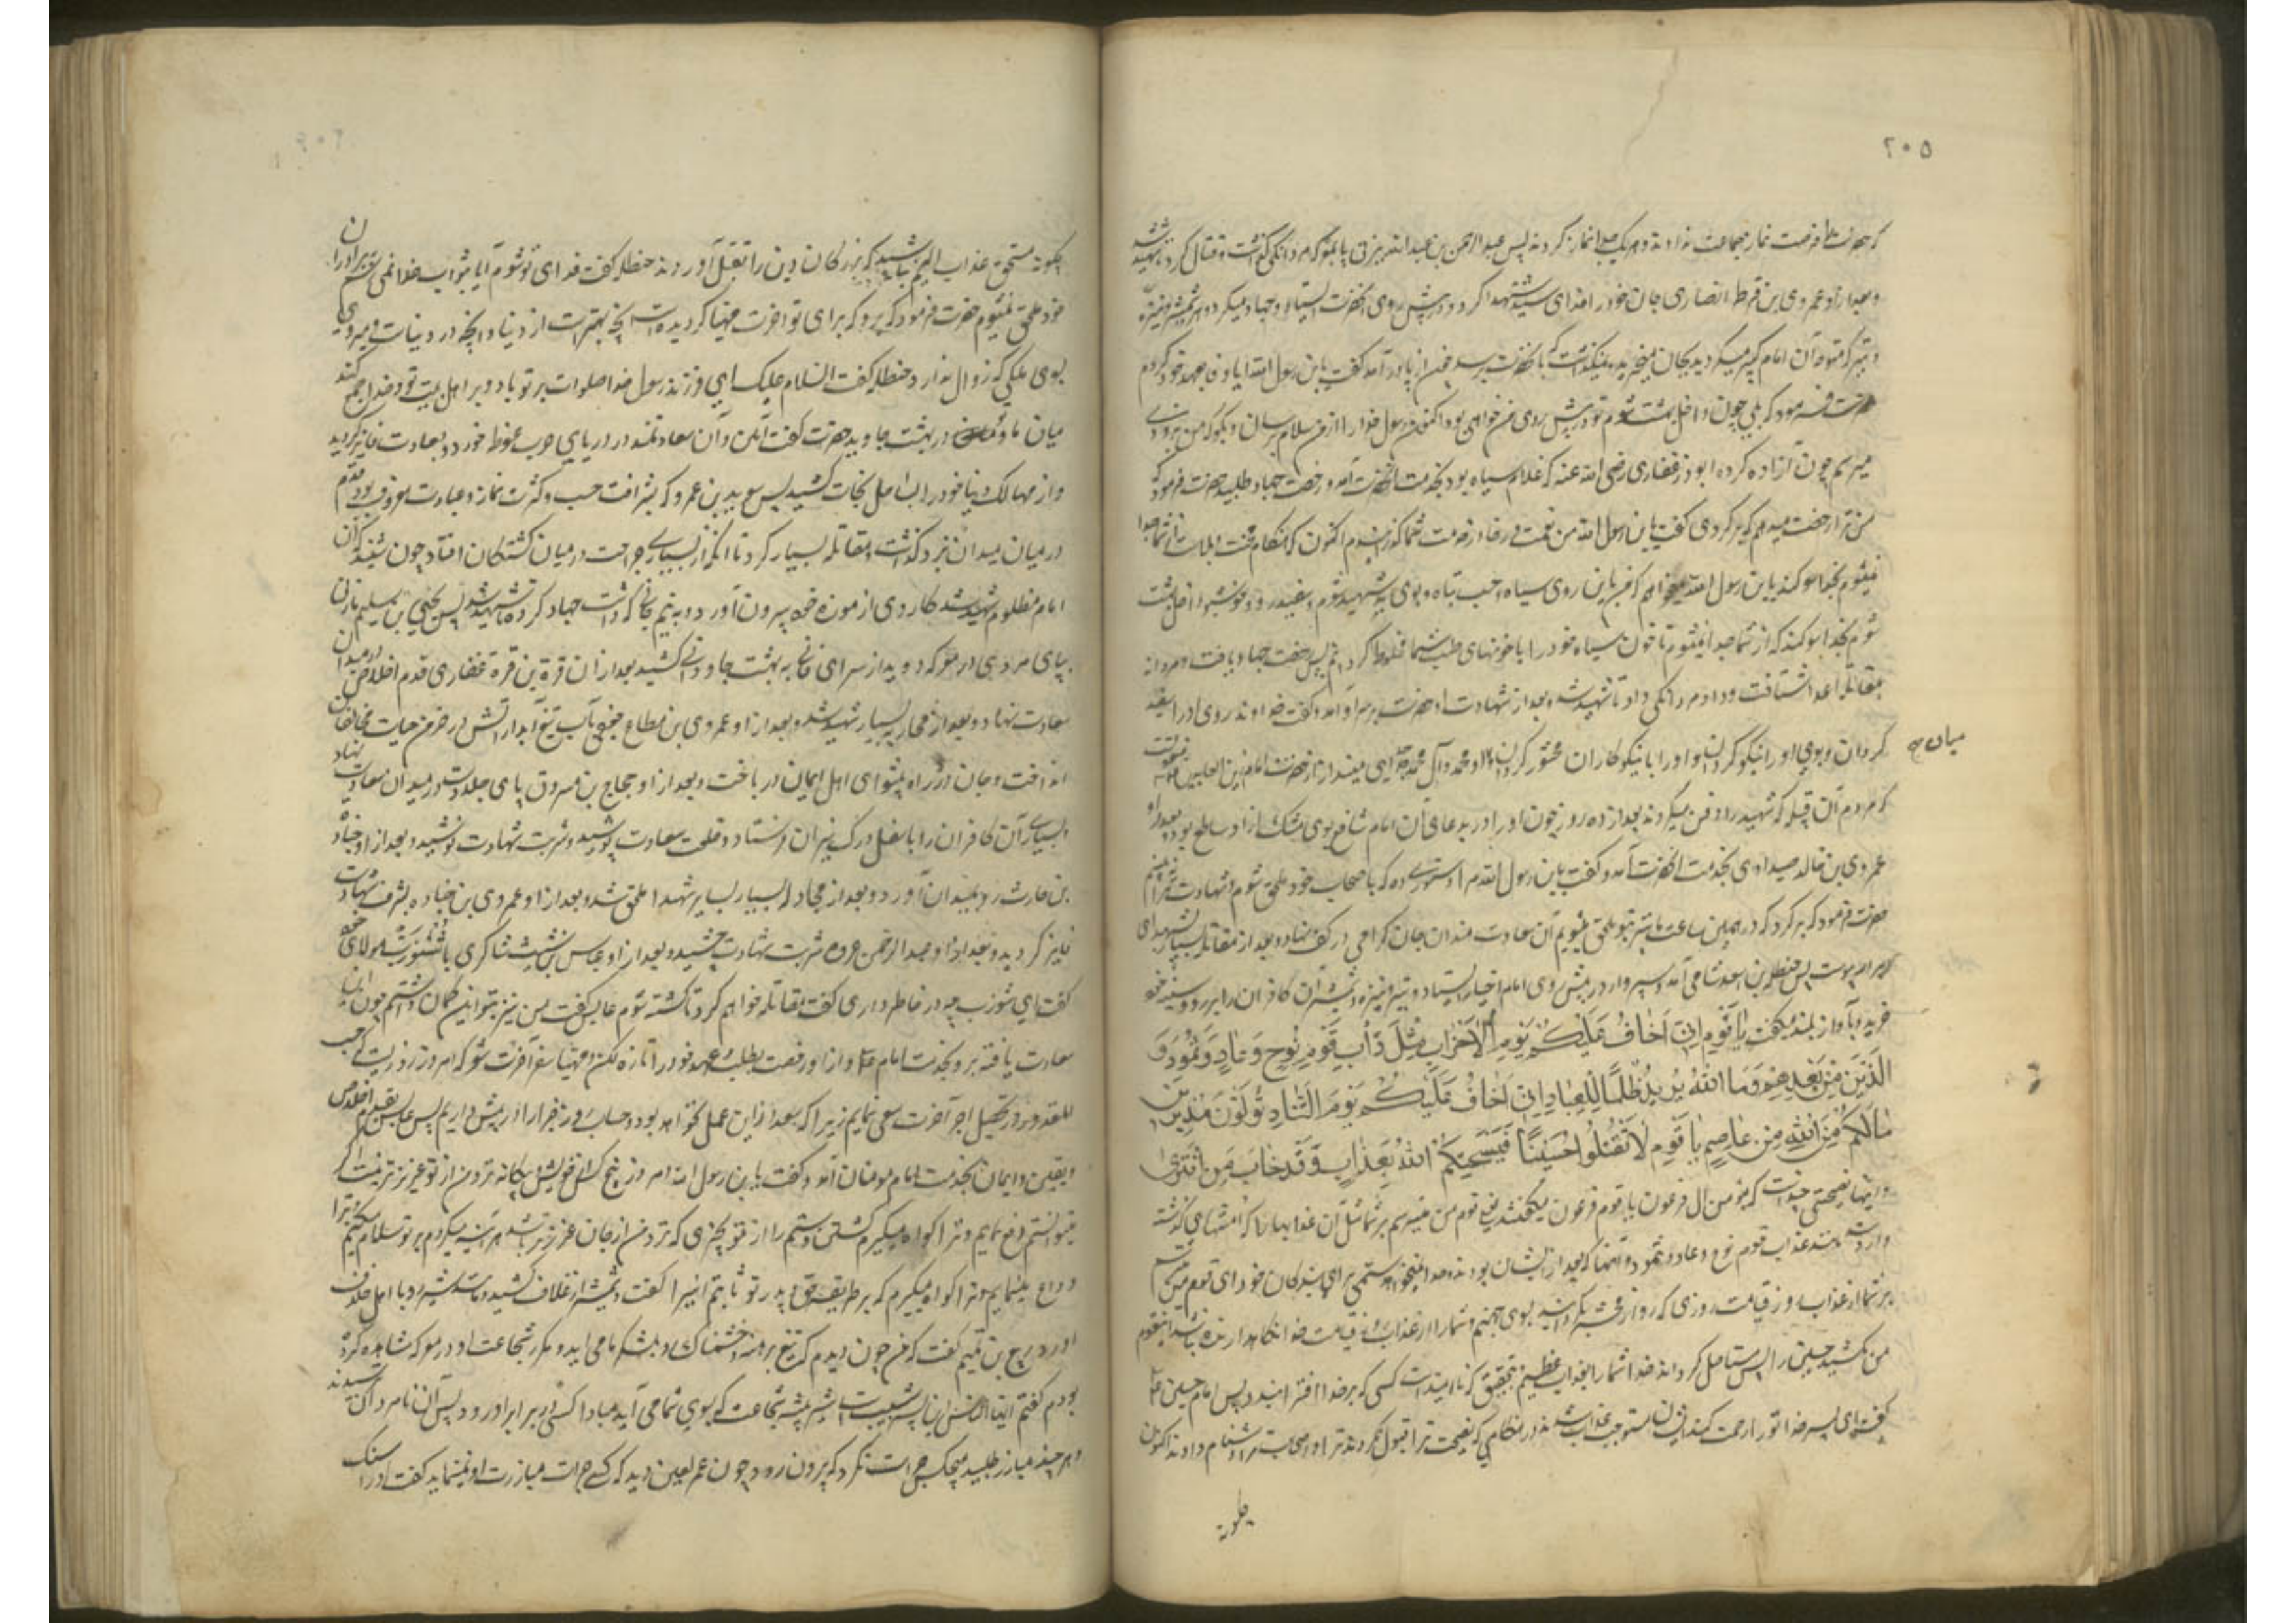 ۲۰۵
که حضرت را فرصت نماز جماعت ندادند و هر یک جدا نماز کردند پس عبد الرحمن بن عبد الله یزنی پا بمعرکه مردانگی گذاشت و قتال کرد تا شهید شد
و بعد از او عمروی بن قرطه انصاری جان خود را فدای سید شهدا کرد و در پیش روی آنحضرت ایستاد و جهاد میکرد و هر شمشیر و نیزه
و تیر که متوجه آن امام کبیر میگردید بجان میخرید و نمیگذاشت که بآنحضرت برسد چون از پا در آمد گفت یابن رسول الله آیا وفا بعهد خود کردم
حضرت فرمود که بلی چون داخل بهشت شوم تو در پیش روی من خواهی بود اکنون رسول خدا را از من سلام برسان و بگو که من بزودی
میرسم چون آزاد کرده ابوذر غفاری رضی الله عنه که غلام سیاه بود بخدمت آنحضرت آمد و رخصت جهاد طلبید حضرت فرمود که
من ترا رخصت میدهم که برگردی گفت یابن رسول الله من نعمت و رفاه از خدمت شما گذرانیدم اکنون که هنگام محنت و بلاست از شما جدا
نمیشوم بخدا سوگند یابن رسول الله میخواهم که من باین روی سیاه و حسب تباه و بوی بد شهید شوم و سفید رو و خوشبو داخل بهشت
شوم بخدا سوگند که از شما جدا نمیشوم تا خون سیاه خود را با خونهای طیب شما مخلوط گردانم پس رخصت جهاد یافت و مردانه
بمقاتله اعدا شتافت و داد مردانگی داد تا شهید شد و بعد از شهادت او حضرت بر سر او آمد و گفت خداوندا روی او را سفید
گردان و بوی او را نیکو گردان و او را با نیکوکاران محشور گردان و میان او و محمد و آل محمد جدایی میندار از حضرت امام زین العابدین منقولست
میان
که مردم آن قبیله که شهیدان را دفن میکردند بعد از ده روز چون او را دیدند بدعای آن امام شافع بوی مشک از او ساطع بود و بعد از او
عمروی بن خالد صیداوی بخدمت آنحضرت آمد و گفت یابن رسول الله مرا دستوری ده که باصحاب خود ملحق شوم و شهادت ترا نبینم
حضرت فرمود که برو که در همین ساعت ما نیز بتو ملحق میشویم آن سعادتمندان جان گرامی در کف نهاد و بعد از مقاتله بسیار بشهدای
ابرار پیوست پس حنظله بن اسعد شامی آمد و سپر وار در پیش روی امام اخیار ایستاد و تیر و نیزه و شمشیر آن کافران را بر رو و سینه خود
خرید و بآواز بلند میگفت یا قوم انی اخاف علیکم یوم الاحزاب مثل دأب قوم نوح و عاد و ثمود و
الذین من بعدهم و ما الله یرید ظلما للعباد انی اخاف علیکم یوم التناد یوم تولون مدبرین
ما لکم من الله من عاصم یا قوم لا تقتلوا حسینا فیسحتکم الله بعذاب و قد خاب من افتری
و اینها نصیحتی چند است که مؤمن آل فرعون با قوم فرعون میگفتند یعنی قوم من میترسم بر شما مثل آن عذابها را که امتهای گذشته
وارد شد مانند عذاب قوم نوح و عاد و ثمود و آنها که بعد از ایشان بودند و خدا نمیخواهد ستمی برای بندگان خود ای قوم من میترسم
بر شما از عذاب روز قیامت روزی که رو از محشر بگردانید بسوی جهنم و شما را از عذاب روز قیامت خدا نگاه دارنده نباشد ای قوم
من مکشید حسین را پس مستأصل گرداند خدا شما را بعذاب عظیم بتحقیق که ناامید است کسی که بر خدا افترا بندد پس امام حسین ع
گفت ای پسر خدا تو را رحمت کند ایشان مستوجب عذاب شدند در هنگامی که نصیحت ترا قبول نکردند و ترا و اصحاب ترا دشنام دادند اکنون
چگونه
چگونه مستحق عذاب الیم نباشند که بزرگان دین را بقتل آوردند حنظله گفت فدای تو شوم آیا بثواب خدا نمیرسیم و برادران
خود ملحق نمیشویم حضرت فرمود که برو که برای تو آخرت مهیا گردیده است آنچه بهتر است از دنیا و آنچه در دنیاست و میروی
بسوی ملکی که زوال ندارد حنظله گفت السلام علیک ای فرزند رسول خدا صلوات بر تو باد و بر اهل بیت تو و خدا جمع کند
میان ما و شما در بهشت جاوید حضرت گفت آمین و آن سعادتمند در دریای حرب غوطه خورد و بسعادت فایز گردید
و از مهالک دنیا خود را بساحل نجات کشید پس سوید بن عمرو که بشرافت حسب و کثرت نماز و عبادت معروف بود قدم
در میان میدان نبرد گذاشت و مقاتله بسیار کرد تا آنکه از بسیاری جراحت در میان کشتگان افتاد چون شنید که آن
امام مظلوم شهید شد کاردی از موزه خود بیرون آورد و به نیم جانی که داشت جهاد کرد تا شهید شد پس یحیی بن سلیم مازنی
بپای مردی در معرکه دوید از سرای فانی به بهشت جاودانی کشید بعد از آن قرة بن قره غفاری قدم اخلاص در میدان
سعادت نهاد و بعد از محاربه بسیار شهید شد و بعد از او عمروی بن مطاع جعفی بآب تیغ آبدار آتش در خرمن حیات مخالفان
انداخت و جان در راه پیشوای اهل ایمان در باخت و بعد از او حجاج بن مسروق پای جلادت در میدان سعادت نهاد
بسیاری آن کافران را باسفل درک نیران فرستاد و خلعت سعادت پوشید و شربت شهادت نوشید و بعد از او جناده
بن حارث رو بمیدان آورد و بعد از مجادله بسیار بسایر شهدا ملحق شد و بعد از او عمروی بن جناده بشرف شهادت
فایز گردید و بعد از او عبد الرحمن عروه شربت شهادت چشید و بعد از او عابس بن شبیب شاکری با شوذب مولای خود
گفت ای شوذب چه در خاطر داری گفت مقاتله خواهم کرد تا کشته شوم عابس گفت من نیز بتو این گمان داشتم چون این
سعادت یافته برو بخدمت امام ع و از او رخصت بطلب و عهد خود را تازه کن و مهیا سفر آخرت شو که امروز روزیست که
المقدور در تحصیل اجر آخرت سعی نمایم زیرا که بعد از این عمل نخواهد بود و حساب روز جزا را در پیش داریم پس عابس بقدم اخلاص
و یقین و ایمان بخدمت امام مؤمنان آمد و گفت یابن رسول الله امروز هیچ کس از خویش و بیگانه نزد من از تو عزیزتر نیست اگر
میتوانستم دفع نمایم و ترا گواه میگیرم کشتن و ستم را از تو بچیزی که نزد من از جان عزیزتر باشد هر آینه میکردم بر تو سلام میکنم و ترا
وداع مینمایم و ترا گواه میگیرم که بر طریق حق پدر تو ثابتم این را گفت و شمشیر از غلاف کشید و مانند شیر رو با اهل خلاف
آورد ربیع بن تمیم گفت که من چون دیدم که تیغ برهنه و خشمناک رو بلشکر ما می آید و مکرر شجاعت او در معرکه مشاهده کرده
بودم گفتم ایها الناس این پسر شبیب است شیر بیشه شجاعت که بسوی شما می آید مبادا کسی در برابر او رود پس آن نامردان ترسیدند
و هر چند مبارز طلبید هیچکس جرأت نکرد که بیرون رود چون عمر لعین دید که کسی جرأت مبارزت او نمینماید گفت او را سنگ